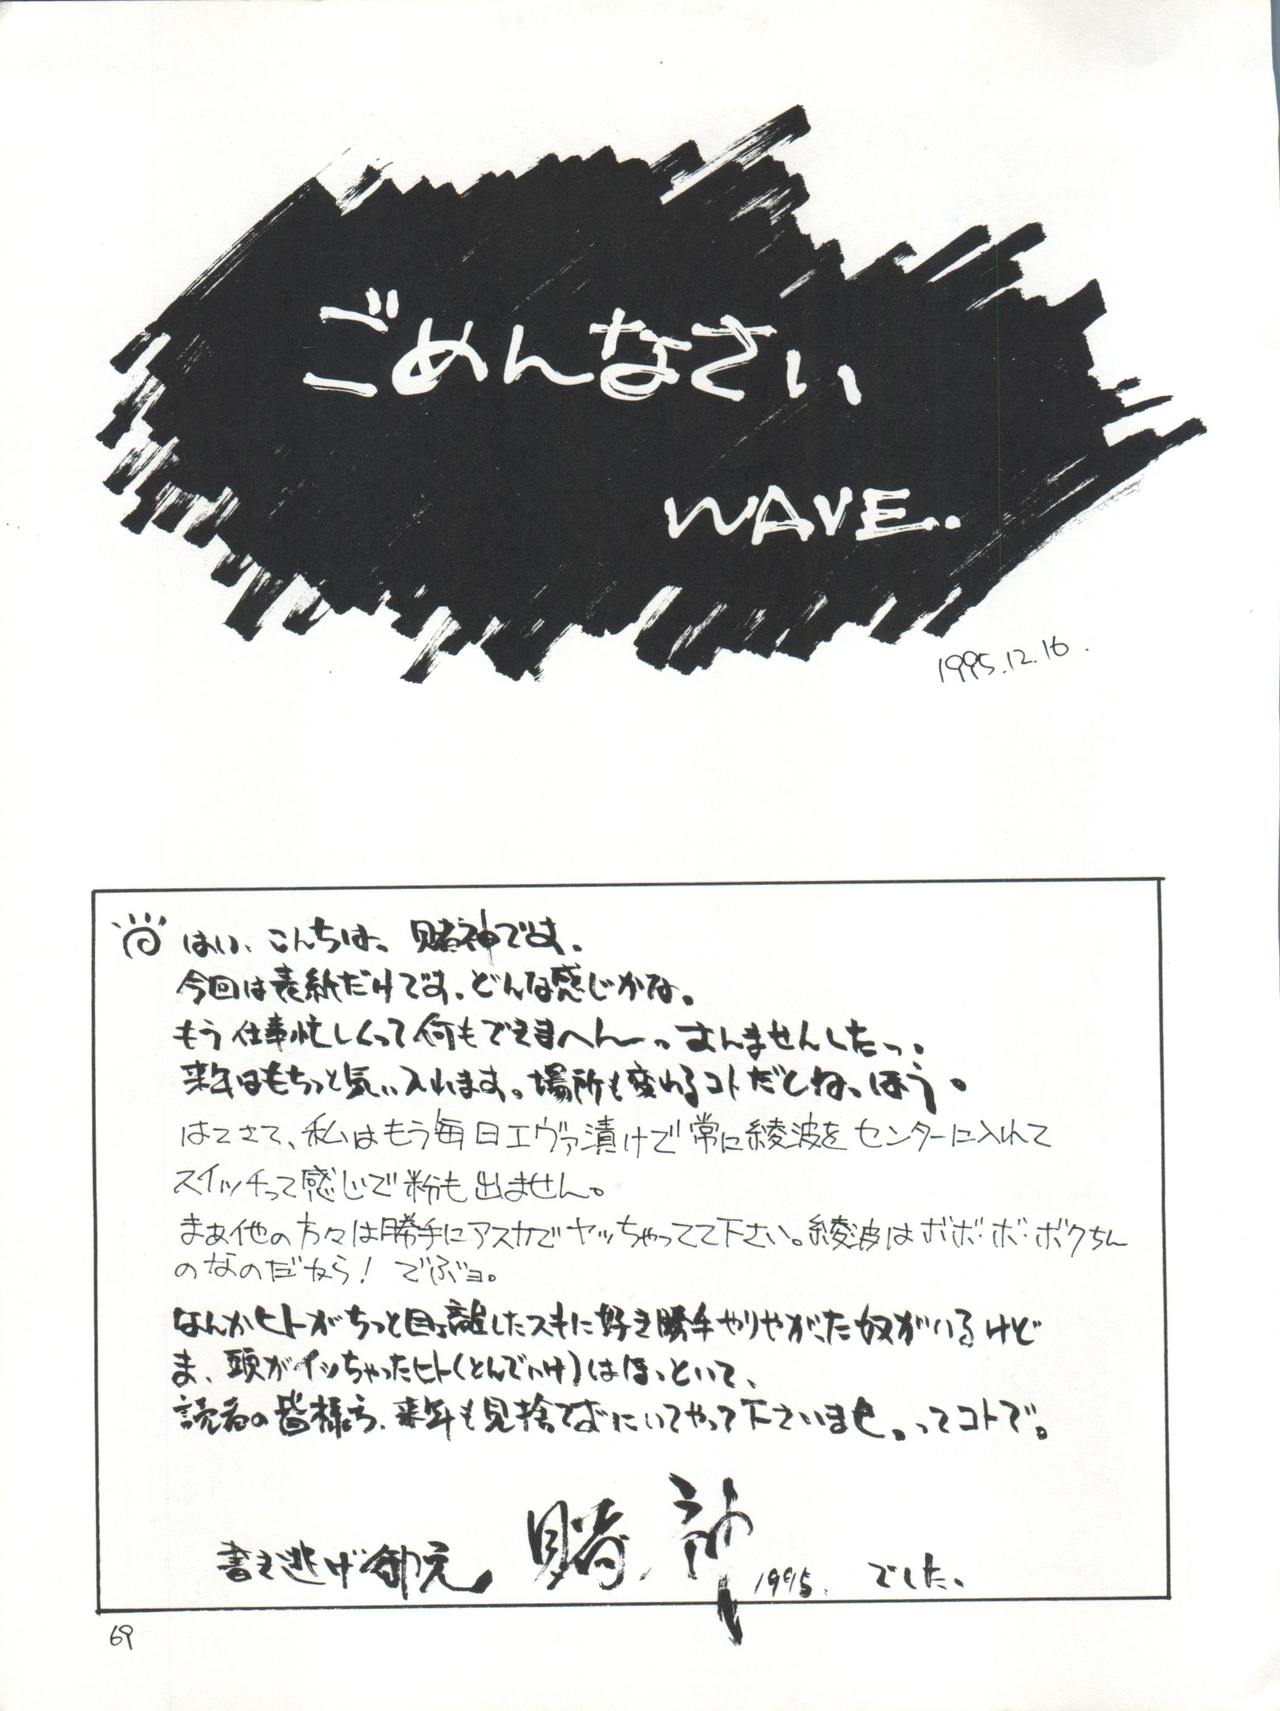 ごめんなさい
WAVE.
1995.12.16.
はい、こんちは。賭神です。
今回は表紙だけです。どんな感じかな。
もう仕事忙しくって何もできまへんーっすんませんしたっ。
来年はもちっと気ぃ入れます。場所も変わるコトだしねっほう。
はてさて、私はもう毎日エヴァ漬けで常に綾波をセンターに入れて
スイッチって感じで粉も出ません。
まぁ他の方々は勝手にアスカでヤッちゃってて下さい。綾波はボボ・ボ・ボクちん
のなのだから! でぶョ。
なんかヒトがちっと目っ離したスキに好き勝手やりやがった奴がいるけど
ま、頭がイッちゃったヒト(とんでいけ)はほっといて、
読者の皆様方、来年も見捨てずにいてやって下さいませ。ってコトで。
書き逃げ御免 賭神 1995. でした。
69